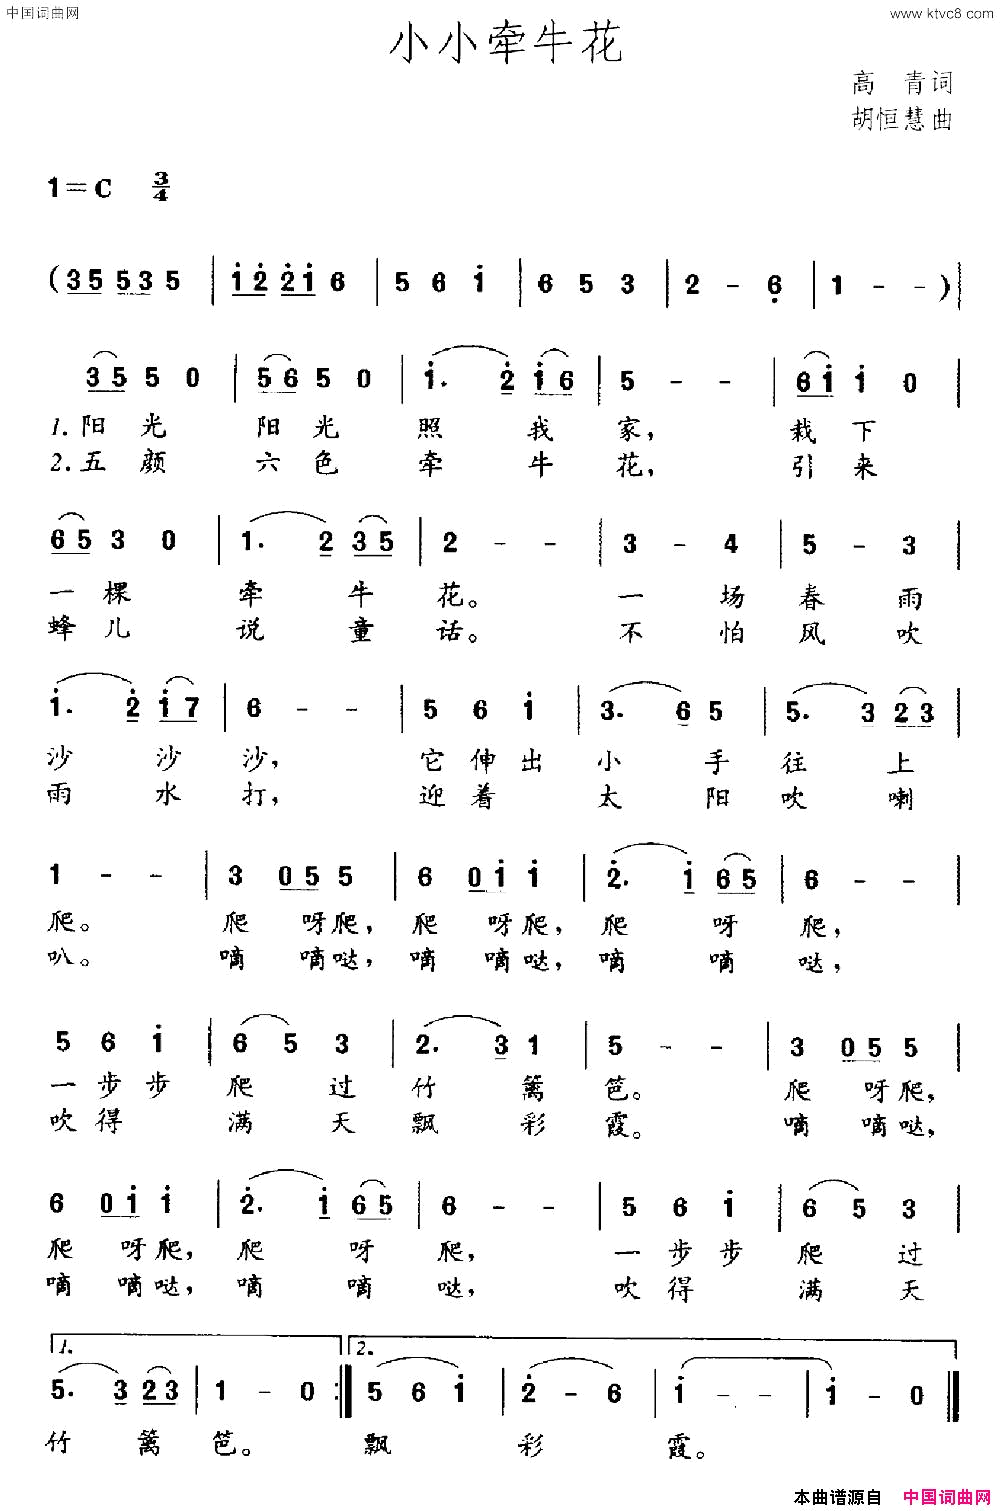 中国词曲网
www.ktvc8.com
小小牵牛花
高 青词
胡恒慧曲
1=C 3/4
(35 53 5 | i2 2i 6 | 5 6 i | 6 5 3 | 2 - 6 | 1 - - )|
35 5 0 | 56 5 0 | i. 2 i6 | 5 - - | 6i i 0 |
1.阳光 阳光 照 我 家, 栽 下
2.五颜 六色 牵 牛 花, 引 来
65 3 0 | 1. 2 35 | 2 - - | 3 - 4 | 5 - 3 |
一棵 牵 牛 花。 一 场 春 雨
蜂儿 说 童 话。 不 怕 风 吹
i. 2 i7 | 6 - - | 5 6 i | 3. 6 5 | 5. 3 23 |
沙 沙 沙, 它 伸 出 小 手 往 上
雨 水 打, 迎 着 太 阳 吹 喇
1 - - | 3 055 5 | 6 0ii i | 2. i 65 | 6 - - |
爬。 爬 呀爬, 爬 呀爬, 爬 呀 爬,
叭。 嘀 嘀哒, 嘀 嘀哒, 嘀 嘀 哒,
5 6 i | 6 5 3 | 2. 3 1 | 5 - - | 3 055 5 |
一步步 爬 过 竹 篱 笆。 爬 呀爬,
吹得 满 天 飘 彩 霞。 嘀 嘀哒,
6 0ii i | 2. i 65 | 6 - - | 5 6 i | 6 5 3 |
爬 呀爬, 爬 呀 爬, 一步步 爬 过
嘀 嘀哒, 嘀 嘀 哒, 吹得 满 天
1. 2.
5. 3 23 | 1 - 0 :‖ 5 6 i | 2 - 6 | i - - | i - 0 ‖
竹 篱 笆。 飘 彩 霞。
本曲谱源自 中国词曲网